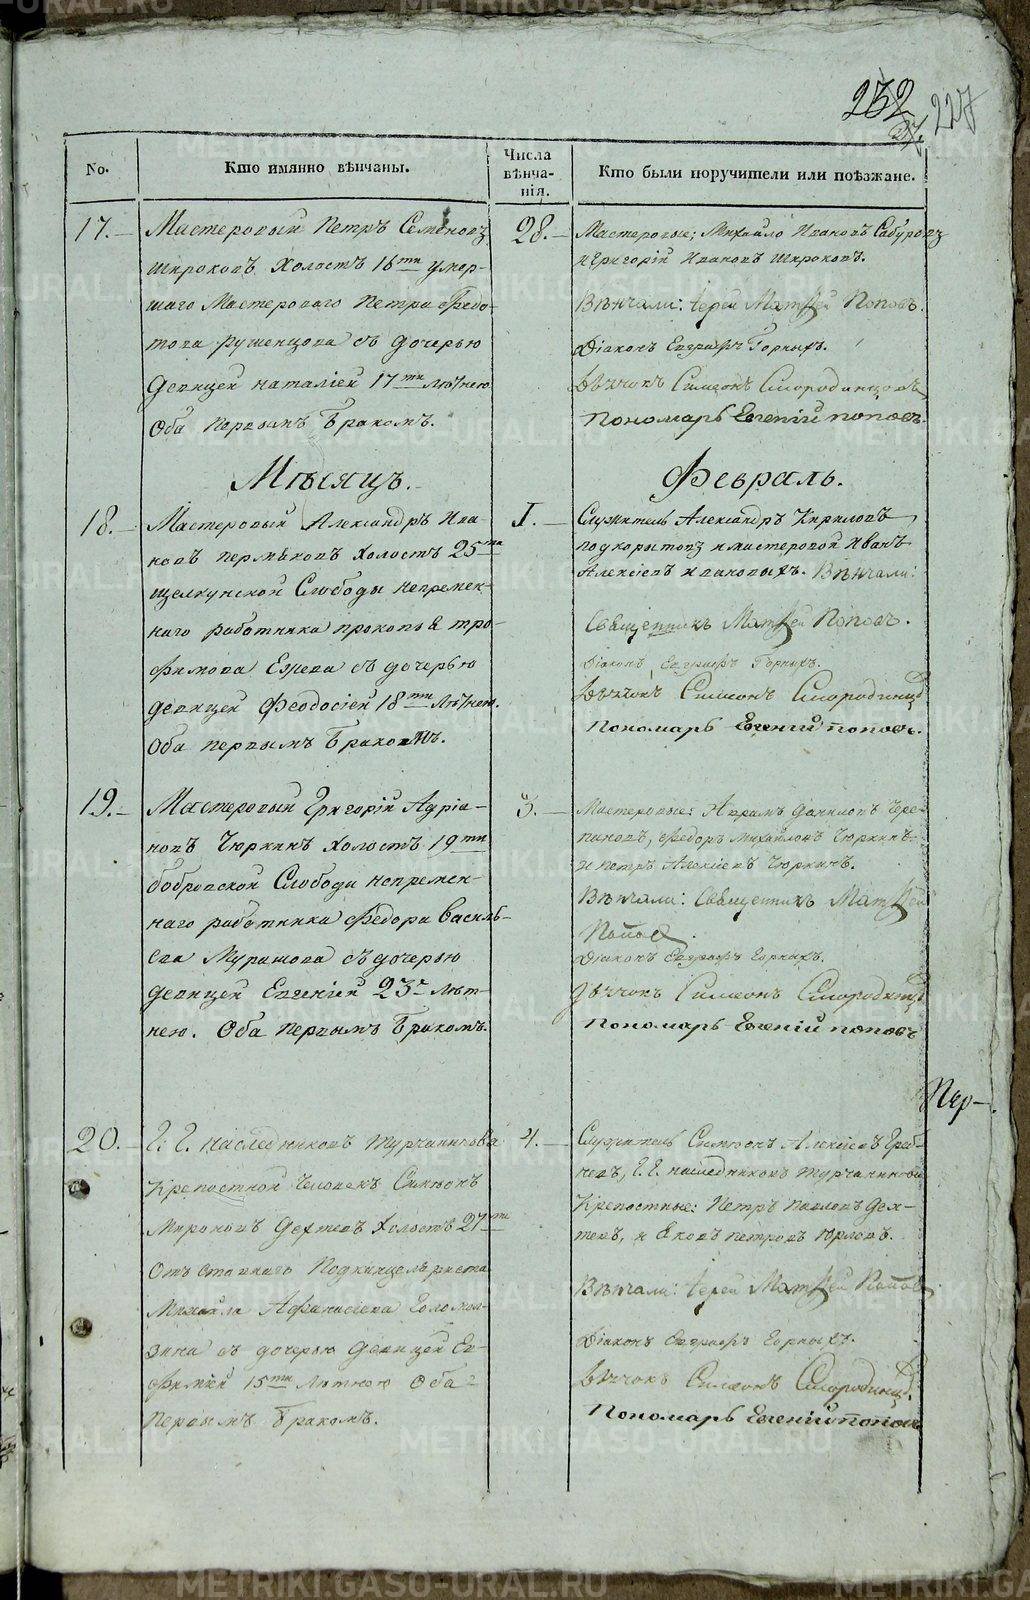 232
227
No.
Кто имянно вѣнчаны.
Числа вѣнча-нія.
Кто были поручители или поѣзжане.
17.
Мастеровый Петръ Семеновъ
Широковъ Холостъ 18ти умер-
шаго Мастероваго Петра Ѳедо-
това съ дочерью
девицей Наталіей 17ти лѣтнею
Оба первымъ бракомъ.
28.
Мастеровые: Михайло Ивановъ Сабуровъ
и Григорій Ивановъ Широковъ.
Вѣнчали: Іерей Матѳей Поповъ.
Діаконъ Евграфъ Горныхъ.
Дьячокъ Симеонъ Смородинцовъ
Пономарь Евгеній Поповъ.
Мѣсяцъ.
Февраль.
18.
Мастеровый Александръ Ива-
новъ Пермяковъ Холостъ 25ти
Щелкунской Слободы непремен-
наго работника Прокопья Тро-
фимова съ дочерью
девицей Феодосіей 18ти лѣтнею.
Оба первымъ бракомъ.
1.
Служитель Александръ Кириловъ
Подкорытовъ и мастеровой Иванъ
Алексіевъ Ивановыхъ. Вѣнчали:
Священникъ Матѳей Поповъ.
Діаконъ Евграфъ Горныхъ.
Дьячокъ Симеонъ Смородинцовъ
Пономарь Евгеній Поповъ.
19.
Мастеровый Григорій Адріа-
новъ Чюркинъ Холостъ 19ти
Бобровской Слободы непремен-
наго работника Федора Василь-
ева Мурашова съ дочерью
девицей Евгеніей 23х лѣт-
нею. Оба первымъ бракомъ.
3.
Мастеровые: Аврамъ Даниловъ Чере-
пановъ, Федоръ Михайловъ Чюркинъ
и Петръ Алексіевъ Чюркинъ.
Вѣнчали: Священникъ Матѳей
Поповъ.
Діаконъ Евграфъ Горныхъ.
Дьячокъ Симеонъ Смородинцовъ
Пономарь Евгеній Поповъ
20.
Г: Г. наследниковъ Турчанинова
Крепостной человекъ Симеонъ
Мироновъ Дехтевъ Холостъ 27ми
Отъ ставнаго Подканцеляриста
Михайла Афанасіева Голомол-
зина съ дочерью девицей Ев-
фиміей 15ти лѣтнею Оба
первымъ бракомъ.
4.
Служитель Симеонъ Алексіевъ Греб-
невъ, Г. Г. наследниковъ Турчанинова
Крепостные: Петръ Павловъ Дех-
тевъ, и Яковъ Петровъ Юрловъ.
Вѣнчали: Іерей Матѳей Поповъ
Діаконъ Евграфъ Горныхъ.
Дьячокъ Симеонъ Смородинцовъ.
Пономарь Евгеній Поповъ
METRIKI.GASO-URAL.RU